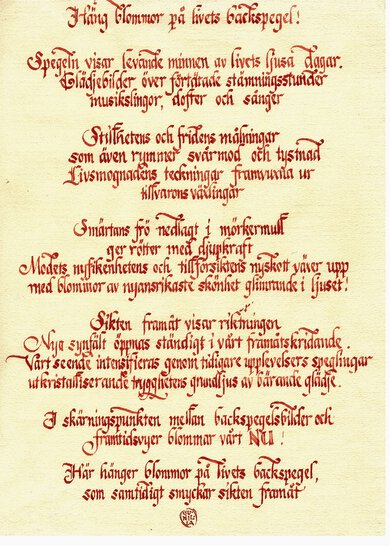 Häng blommor på livets backspegel!
Spegeln visar levande minnen av livets ljusa dagar.
Glädjebilder över förtätade stämningsstunder
musikslingor, dofter och sånger
Stillhetens och fridens målningar
som även rymmer svårmod och tystnad
Livsmognadens teckningar framvuxna ur
tillvarons växlingar
Smärtans frö nedlagt i mörkermull
ger rötter med djupkraft
Modets nyfikenhetens och tillförsiktens nyskott väver upp
med blommor av nyansrikaste skönhet glimrande i ljuset!
Sikten framåt visar riktningen
Nya synfält öppnas ständigt i vårt framåtskridande.
Vårt seende intensifieras genom tidigare upplevelsers speglingar
utkristalliserande trygghetens grundljus av bärande glädje.
I skärningspunkten mellan backspegelsbilder och
framtidsvyer blommar vårt NU!
Här hänger blommor på livets backspegel,
som samtidigt smyckar sikten framåt